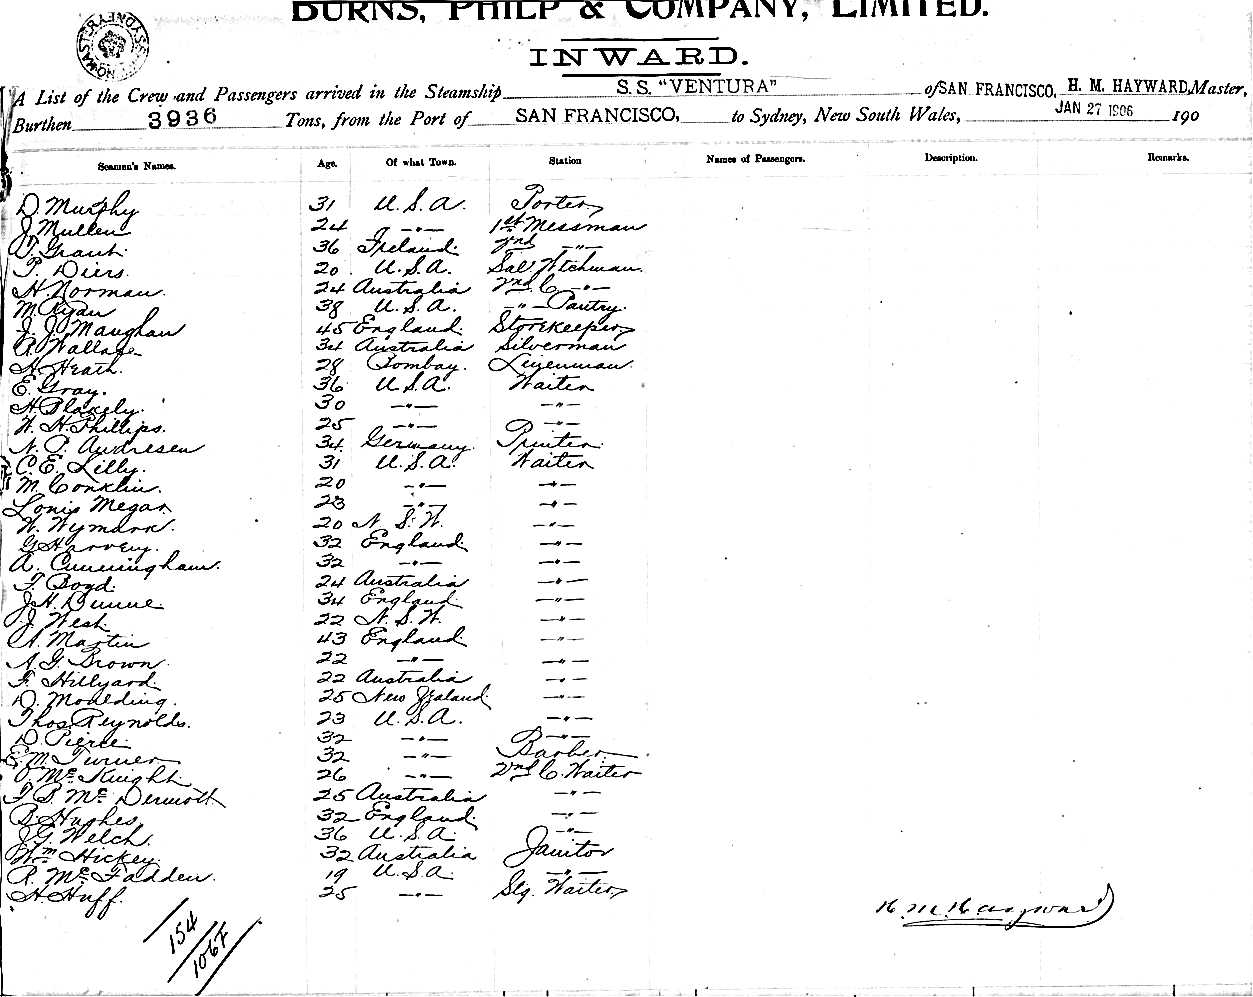 BURNS, PHILP & COMPANY, LIMITED.
INWARD.
A List of the Crew and Passengers arrived in the Steamship S.S. "VENTURA" of SAN FRANCISCO, H. M. HAYWARD, Master,
Burthen 3936 Tons, from the Port of SAN FRANCISCO, to Sydney, New South Wales, JAN 27 1906 190
Seamen's Names. Age. Of what Town. Station Names of Passengers. Description. Remarks.
D. Murphy 31 U.S.A. Porter
J. Mullen 24 -"- 1st Messman
T. Grant 36 Ireland 2nd -"-
P. Diers 20 U.S.A. Sal Wtchman
H. Norman 24 Australia 2nd C -"-
M. Ryan 38 U.S.A. -"- Pantry.
J. J. Maughan 45 England Storekeeper
A. Wallage 34 Australia Silverman
H. Heath. 28 Bombay. Linenman
E. Gray. 36 U.S.A. Waiter
H. Blakely. 30 -"- -"-
W. H. Phillips. 25 -"- -"-
N. P. Andresen 34 Germany Printer
C. E. Lilly. 31 U.S.A. Waiter
M. Conklin. 20 -"- -"-
Louis Megar 23 -"- -"-
W. Wymark. 20 N.S.W. -"-
G Harvey. 32 England -"-
A. Cunningham. 32 -"- -"-
F. Boyd. 24 Australia -"-
J. H. Dunne 34 England -"-
J. West 22 N.S.W. -"-
A. Martin 43 England -"-
A. G. Brown 22 -"- -"-
F. Hillyard. 22 Australia -"-
D. Moulding. 25 New Zealand -"-
Thos. Reynolds. 23 U.S.A. -"-
D. Pierce 32 -"- -"-
E. M. Turner 32 -"- Barber
O. McKnight 26 -"- 2nd C. Waiter
T. B. McDermott 25 Australia -"-
B. Hughes 32 England -"-
J. G. Welch. 36 U.S.A. -"-
Wm Hickey. 32 Australia Janitor
R. McFadden. 19 U.S.A. -"-
H. Huff. 25 -"- Stg. Waiter
H. M. Hayward
154
106F